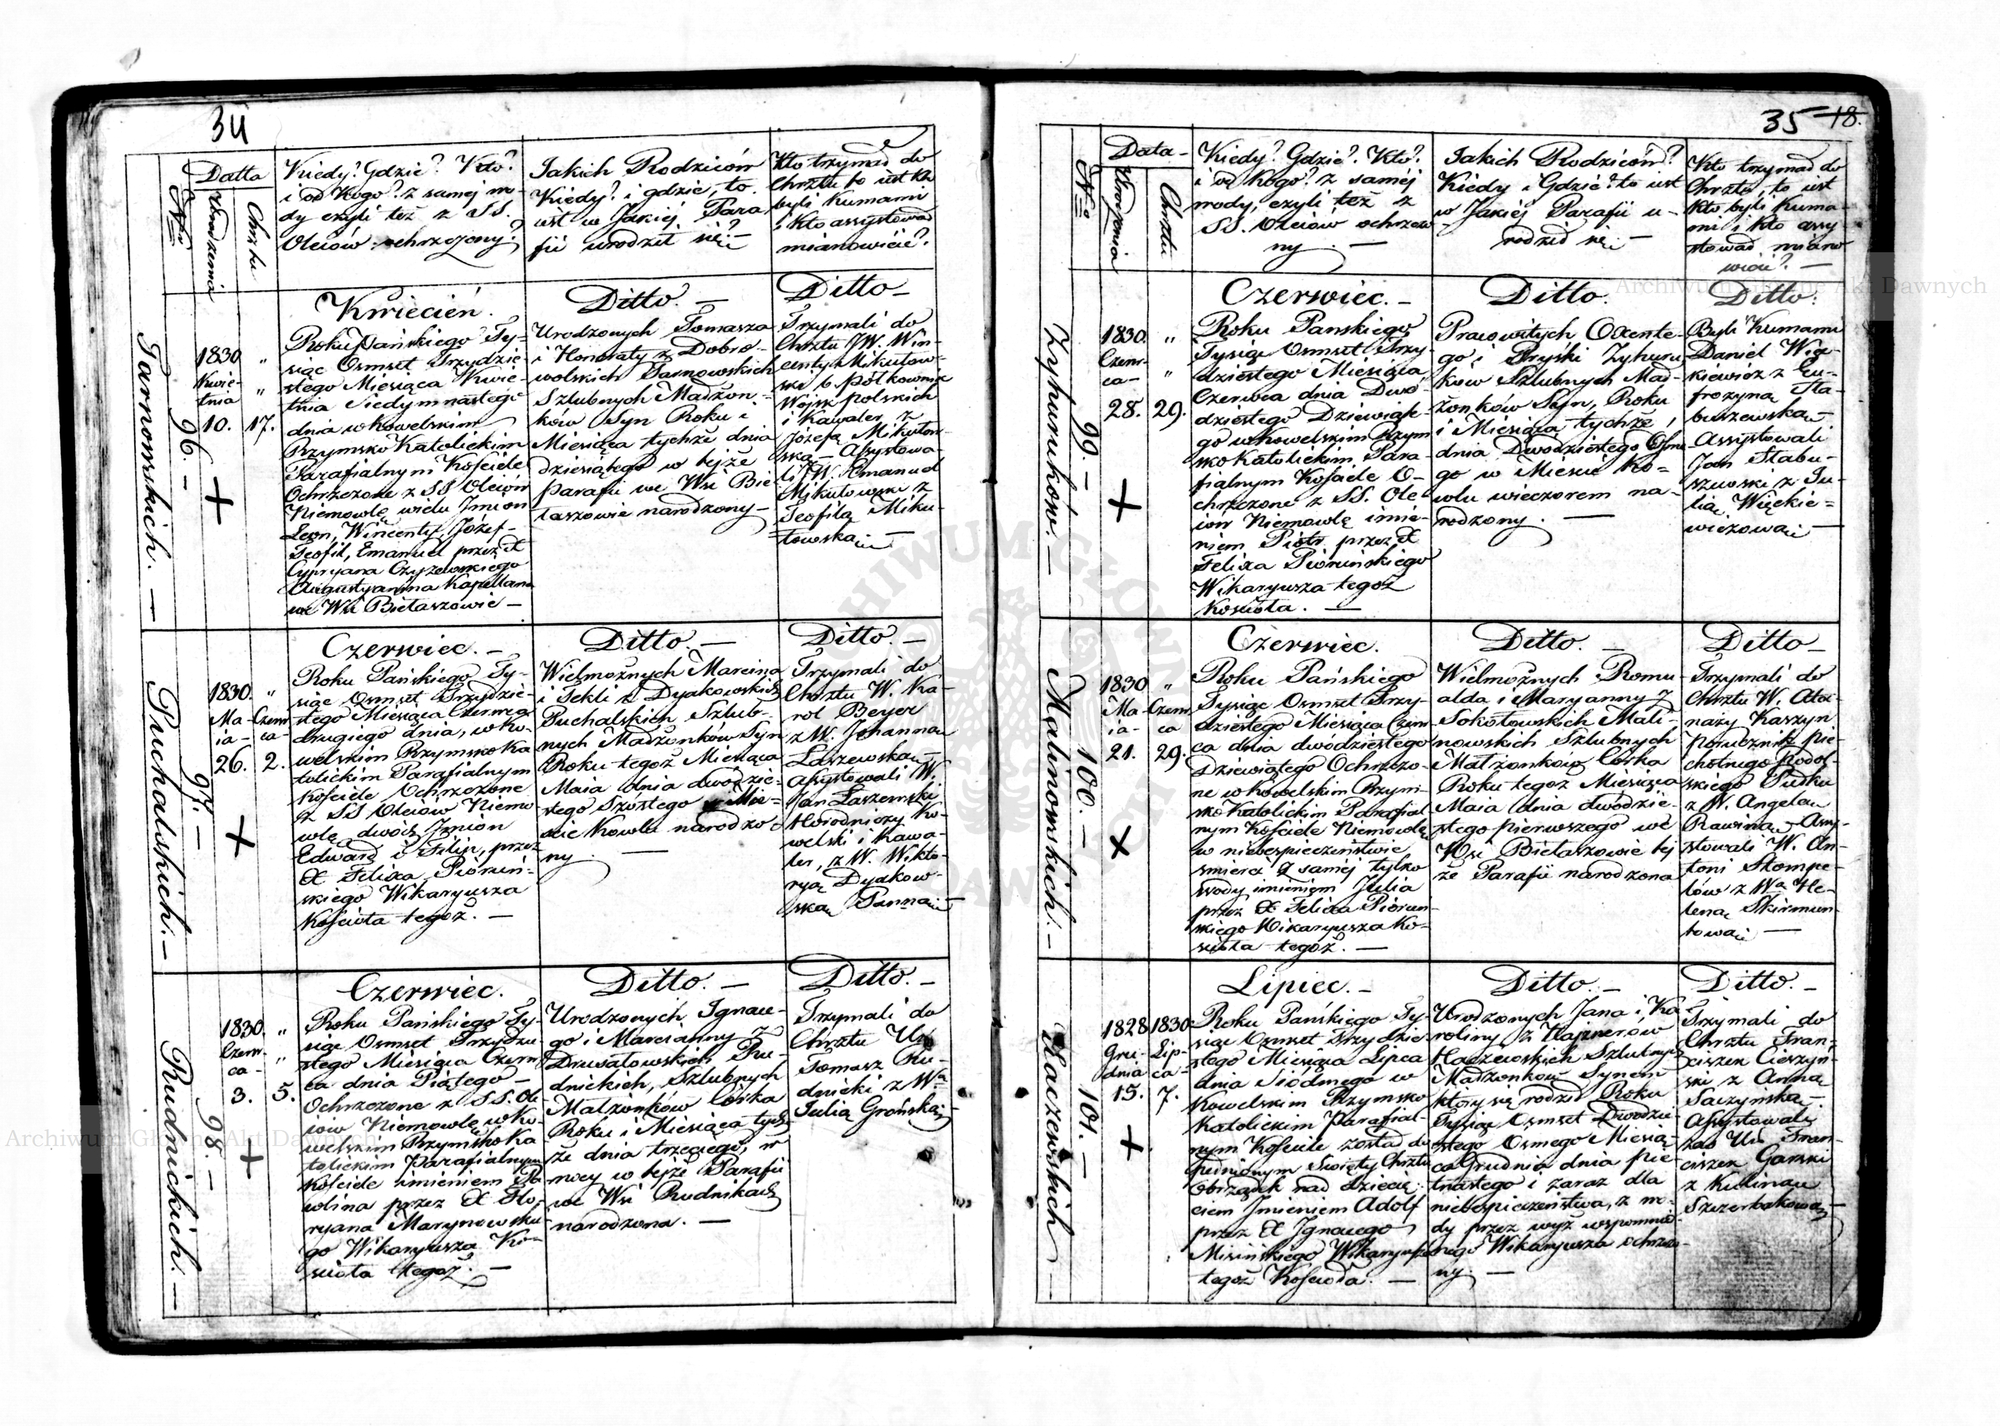 34
Datta
No
Urodzenia
Chrztu
Kiedy? Gdzie? Kto?
i od Kogo? z samej wo
dy czyli też z SS.
Oleiów ochrzczony?
Jakich Rodziców
Kiedy? i gdzie, to
iest w Jakiéj Para
fii urodził się?—
Kto trzymał do
Chrztu to iest kto
byli kumami
i kto assystował
mianowicie?
Tarnowskich. —
96. —
1830 „
Kwie- „
tnia
10. 17.
Kwiecień.
Roku Pańskiego Ty-
siąc Osmset Trzydzie
stego Miesiąca Kwie
tnia Siedymnastego
dnia w kowelskim
Rzymsko Katolickim
Parafialnym Kościele
Ochrzczone z SS Oleiów
Niemowlę wielu Imion
Leon, Wincenty, Józef-
Teofil, Emanuel przez X
Cypryana Czyzewskiego
Augustyanina Kapellana
we Wsi Bielaszowie —
Ditto. —
Urodzonych Tomasza
i Honoraty z Dobro-
wolskich Tarnowskich
Szlubnych Małżon-
ków Syn Roku i
Miesiąca tychże dnia
dziesiątego w tejże
parafii we Wsi Bie
laszowie narodzony —
Ditto —
Trzymali do
Chrztu JW. Win-
centy Mikułow-
ski b Półkownik
Wojsk polskich
i Kawaler z
Józefą Mikułow-
ską — Assystowa-
li JW. Emanuel
Mikułowski z
Teofilą Miku-
łowską —
Puchalskich. —
97. —
1830. „
Ma- Czerw-
ia- ca-
26. 2.
Czerwiec. —
Roku Pańskiego Ty-
siąc Osmset Trzydzie-
stego Miesiąca Czerwca
drugiego dnia, w ko-
welskim Rzymsko Ka
tolickim Parafialnym
kościele Ochrzczone
z SS Oleiów Niemo
wlę dwóch Imion
Edward i Filip, przez
X Felixa Pioruń-
skiego Wikaryusza
Kościoła tegoż. —
Ditto. —
Wielmożnych Marcina
i Tekli z Dyakowskich
Puchalskich Szlub-
nych Małżonków Syn
Roku tegoż Miesiąca
Maia dnia dwódzie-
stego Szóstego w Mie-
ście Kowlu narodzo-
ny. —
Ditto. —
Trzymali do
Chrztu W. Ka-
rol Beyer
z W. Johanną
Laszewską —
assystowali W.
Jan Laszewski
Horodniczy Ko-
welski i Kawa-
ler, z W. Wikto-
ryą Dyakow-
ską Panną —
Rudnickich. —
98. —
1830. „
Czerw- „
ca-
3. 5.
Czerwiec.
Roku Pańskiego Ty-
siąc Osmset Trzydzie
stego Miesiąca Czerw
ca dnia Piątego —
Ochrzczone z SS. Ole
iów Niemowlę w Ko-
welskim Rzymsko Ka
tolickim Parafialnym
kościele imieniem Pa
ulina przez X Flo-
ryana Marynowskie
go Wikaryusza Ko-
ścioła tegoż. —
Ditto. —
Urodzonych Ignace-
go i Marcianny z
Ru-
dnickich, Szlubnych
Małżonków Córka
Roku i Miesiąca tych
że dnia trzeciego,
w tejże Parafii
we Wsi Rudnikach
narodzona. —
Ditto. —
Trzymali do
Chrztu Ur.
Tomasz Ru-
dnicki z Wą
Julią Grońską
35 18.
Data-
No
Urodzenia
Chrztu
Kiedy? Gdzie?. Kto?.
i od Kogo? z saméj
wody, czyli też z
SS. Oleiów ochrzczo
ny —
Jakich Rodziców?
Kiedy i Gdzie? to iest
w Jakiéj Parafii u-
rodził się —
Kto trzymał do
Chrztu, to iest
kto byli Kuma-
mi i kto assy-
stował miano
wicie? —
Zyhuruków. —
99. —
1830. „
Czerw- „
ca-
28. 29.
Czerwiec. —
Roku Panskiego
Tysiąc Osmset Trzy-
dziestego Miesiąca
Czerwca dnia Dwó-
dziestego Dziewiąte-
go w kowelskim Rzym
sko Katolickim Para-
fialnym Kościele O-
chrzczone z SS. Ole
iów Niemowlę imie-
niem Piotr przez X
Felixa Pioruńskiego
Wikaryusza tegoż
Kościoła. —
Ditto.
Pracowitych Oxente-
go i Pryśki Zyhuru
ków Szlubnych Mał-
żonków Syn, Roku
i Miesiąca tychże,
dnia Dwódziestego Osme
go w Mieście Ko-
wlu wieczorem na-
rodzony. —
Ditto.
Byli Kumami
Daniel Wię-
kiewicz z Eu-
frozyną Sta-
buszewską —
Assystowali
Jan Stabu-
szewski z Ju-
lią Więckie-
wiczową —
Malinowskich. —
100. —
1830 „
Ma- Czerw
ia- ca
21. 29.
Czerwiec.
Roku Pańskiego
Tysiąc Osmset Trzy-
dziestego Miesiąca Czerw
ca dnia dwodziestego
Dziewiątego Ochrzczo-
ne w kowelskim Rzym-
sko Katolickim Parafial
nym Kościele Niemowlę
w niebespieczeństwie
śmierci z saméj tylko
wody imieniem Julia
przez X Felixa Pioruń-
skiego Wikaryusza Ko-
ścioła tegoż. —
Ditto. —
Wielmożnych Romu
alda i Maryanny z
Sokołowskich Mali-
nowskich Szlubnych
Małżonków Córka
Roku tegoż Miesiąca
Maia dnia dwódzie-
stego pierwszego we
Wsi Bielaszowie tej
że Parafii narodzona
Ditto —
Trzymali do
Chrztu W. Ata-
nazy Kaszyn
Porucznik pie-
chotnego Podol-
skiego Pułku
z W. Angelą
Rawiną — Assy-
stowali W. An-
toni Stempe-
lów z Wą He-
leną Skirmun-
tową —
Haczewskich —
101. —
1828 1830
Gru- Lip-
dnia ca-
15. 7.
Lipiec. —
Roku Pańskiego Ty-
siąc Osmset Trzydzie-
stego Miesiąca Lipca
dnia Siódmego w
Kowelskim Rzymsko
Katolickim Parafial-
nym Kościele został do
pełnionym Święty Chrztu
Obrządek nad dziecię-
ciem Imieniem Adolf
przez X Ignacego
Misińskiego Wikaryusza
tegoż Kościoła. —
Ditto. —
Urodzonych Jana i Ka
roliny z Hajnerów
Haczewskich Szlubnych
Małżonków Synem
który się rodził Roku
Tysiąc Osmset Dwodzie-
stego Osmego Miesią
ca Grudnia dnia pię-
tnastego i zaraz dla
niebespieczeństwa, z wo-
dy przez wyż wspomnio-
nego Wikaryusza ochrzczo-
ny. —
Ditto. —
Trzymali do
Chrztu Fran-
ciszek Cieszyń-
ski z Anną
Saczyńską —
Assystowali
zaś Ur. Fran-
ciszek Garski
z Kuliną
Szczerbakową
Archiwum Główne Akt Dawnych
Archiwum Główne Akt Dawnych
ARCHIWUM GŁÓWNE AKT DAWNYCH